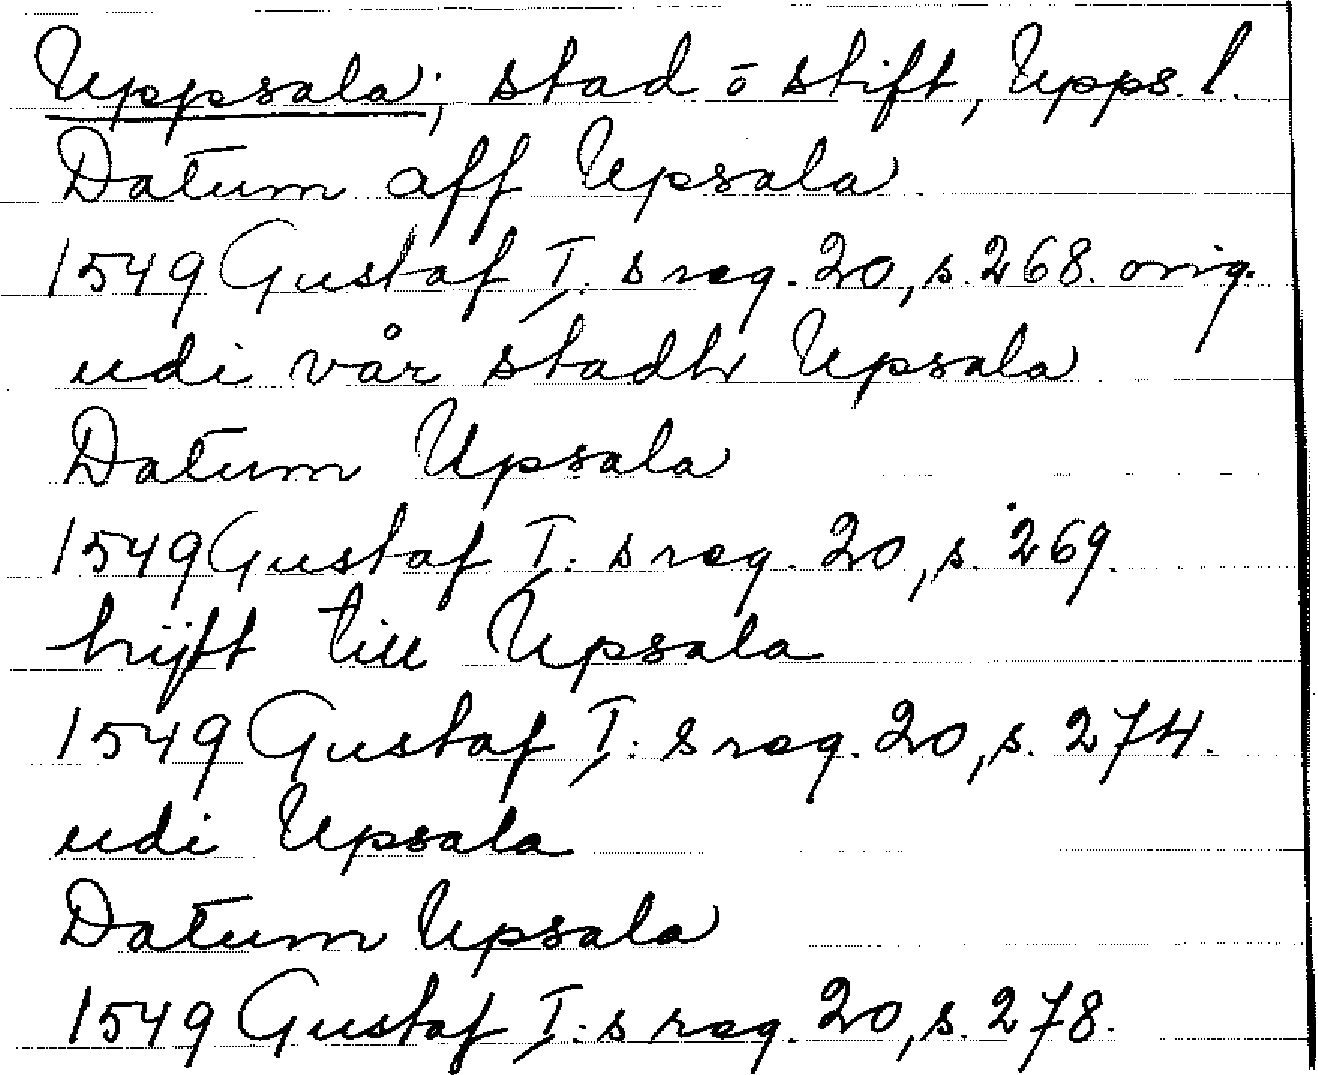 Uppsala; stad o stift, Upps. l.
Datum aff Upsala
1549 Gustaf I: s reg. 20, s. 268. orig.
udi vår stadh Upsala
Datum Upsala
1549 Gustaf I: s reg. 20, s. 269.
hijtt till Upsala
1549 Gustaf I: s reg. 20, s. 274.
udi Upsala
Datum Upsala
1549 Gustaf I: s reg. 20, s. 278.